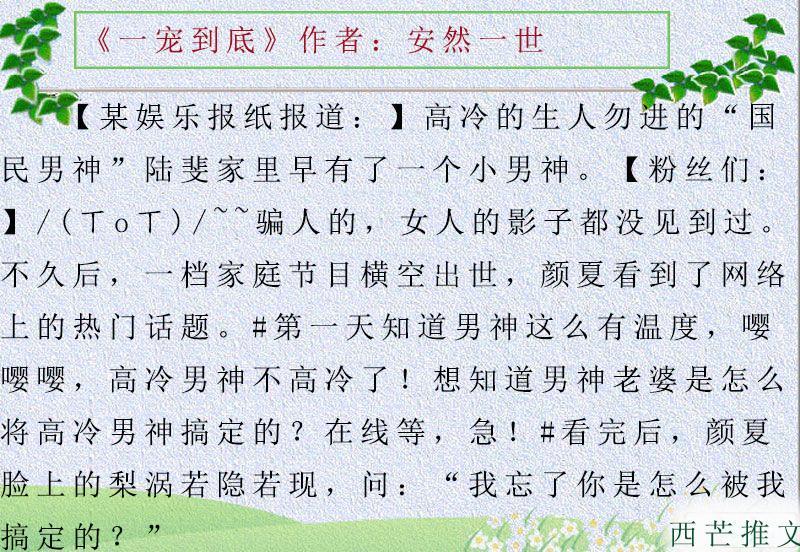 《一宠到底》作者：安然一世
【某娱乐报纸报道：】高冷的生人勿进的“国
民男神”陆斐家里早有了一个小男神。【粉丝们：
】/(ㄒoㄒ)/~~骗人的，女人的影子都没见到过。
不久后，一档家庭节目横空出世，颜夏看到了网络
上的热门话题。#第一天知道男神这么有温度，嘤
嘤嘤，高冷男神不高冷了！想知道男神老婆是怎么
将高冷男神搞定的？在线等，急！#看完后，颜夏
脸上的梨涡若隐若现，问：“我忘了你是怎么被我
搞定的？”
西芒推文